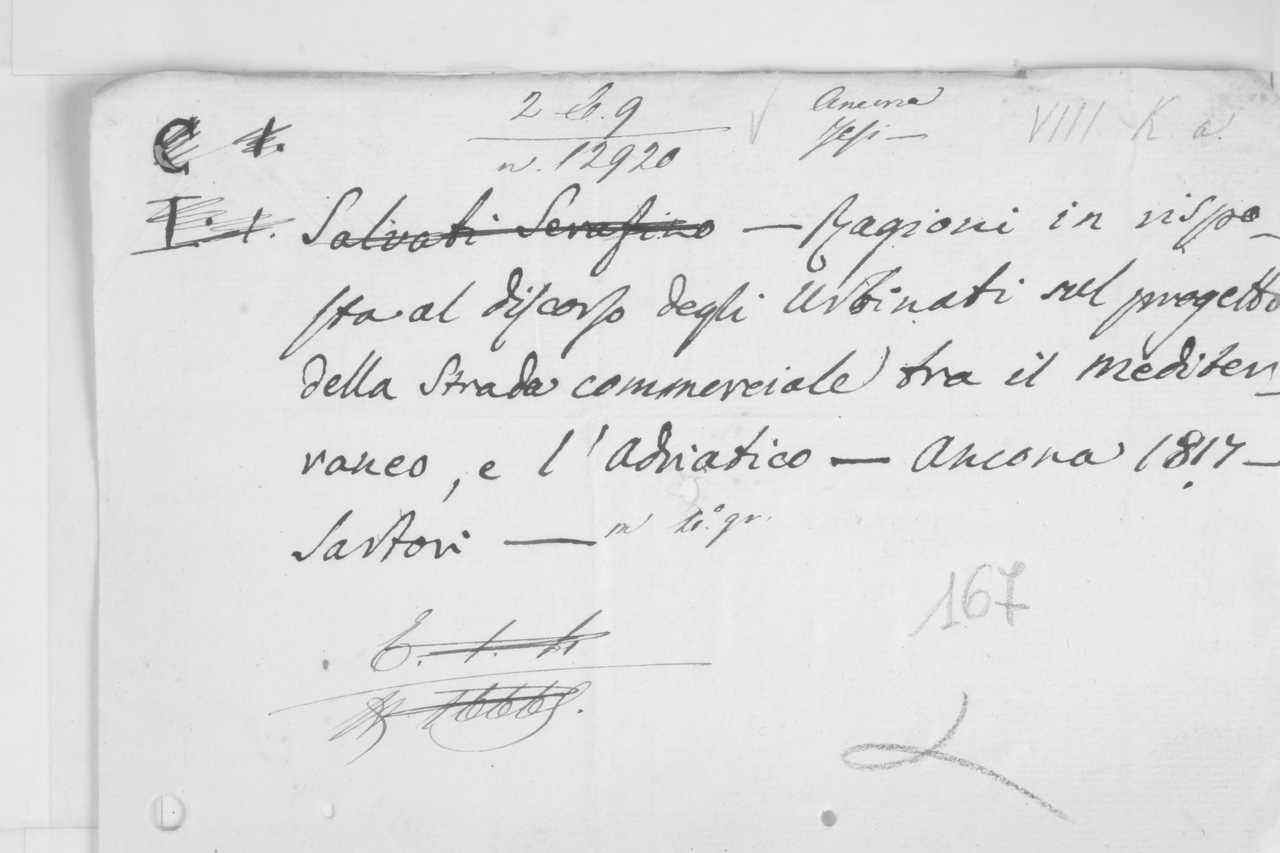 2 E. 9 Ancona VIII K a.
n. 12920 Jesi —
C 1.
T. 1. Salvati Serafino — Ragioni in rispo-
sta al discorso degli Urbinati sul progetto
della Strada commerciale tra il mediter-
raneo, e l'Adriatico — Ancona 1817 —
Sartori — in 4.° gr.
167
E. 1. 4.